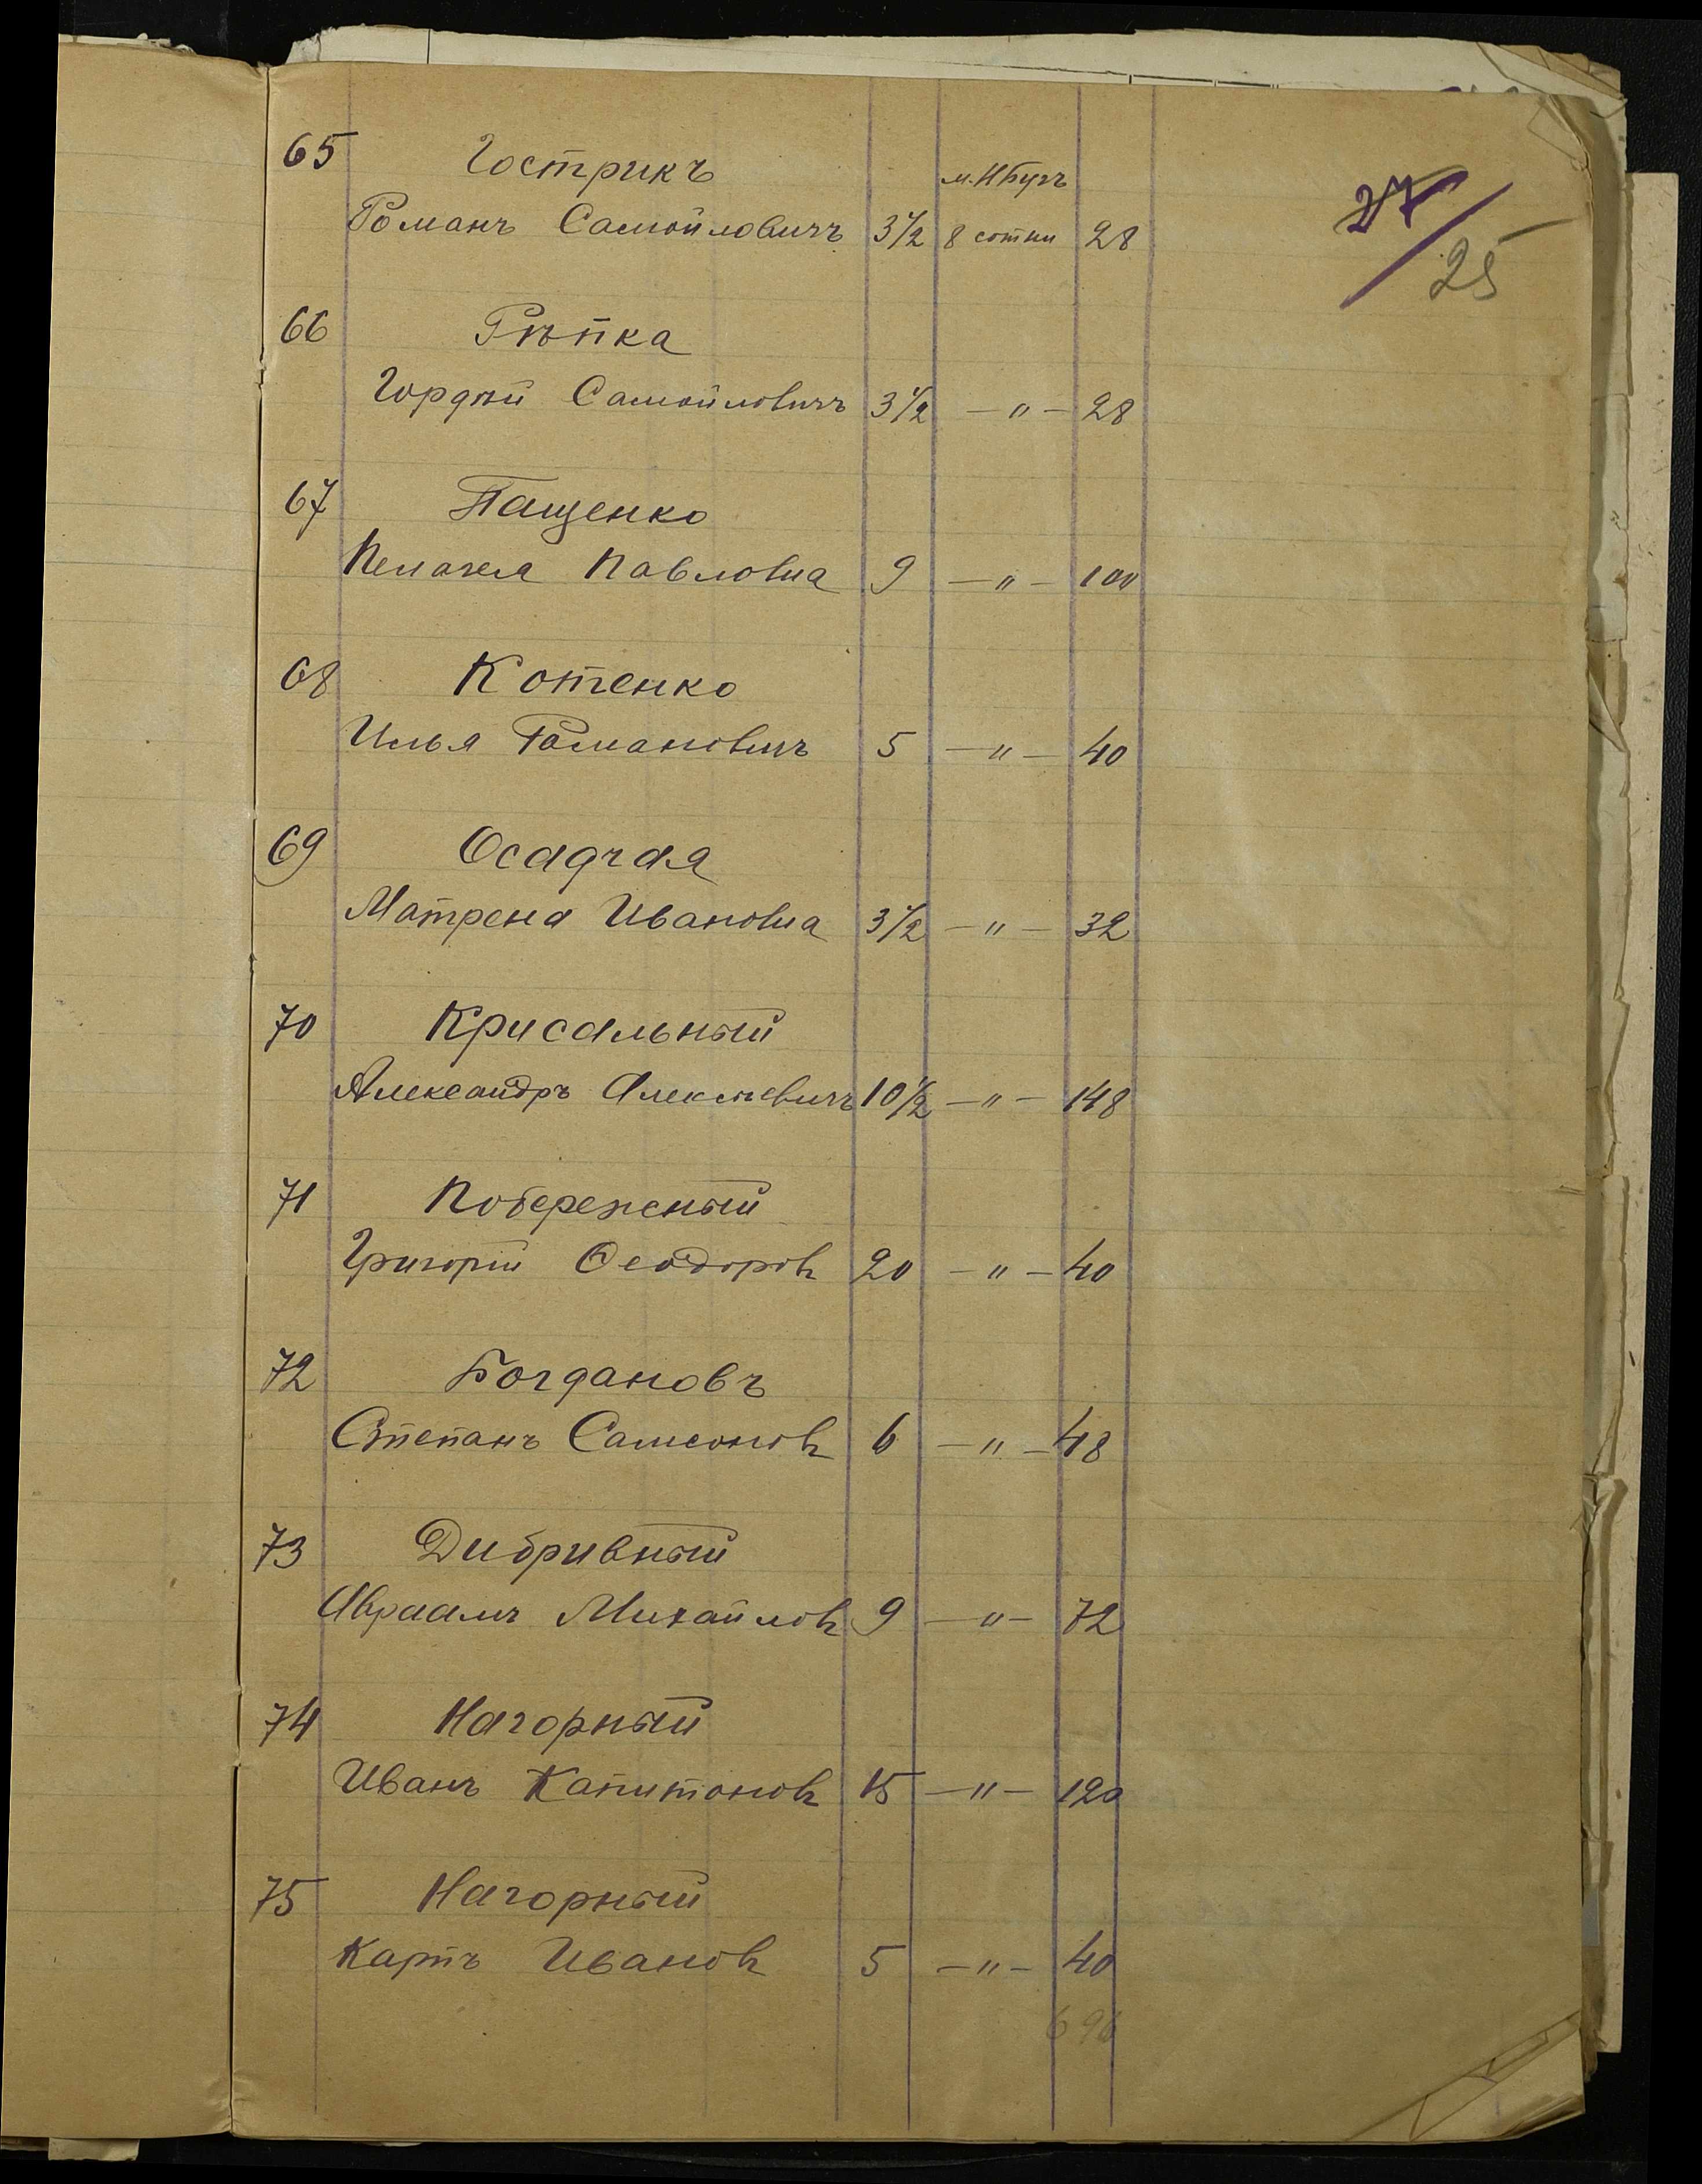 27
25
65 Гострикъ м. НБугъ
Романъ Самойловичъ 3 1/2 8 сотни 28
66 Рѣпка
Гордѣй Самойловичъ 3 1/2 — " — 28
67 Пащенко
Пелагея Павловна 9 — " — 100
68 Котенко
Илья Романовичъ 5 — " — 40
69 Осадчая
Матрена Ивановна 3 1/2 — " — 32
70 Крисальный
Александръ Алексѣевичъ 10 1/2 — " — 148
71 Побережный
Григорій Ѳеодоровъ 20 — " — 40
72 Богдановъ
Степанъ Самсоновъ 6 — " — 48
73 Дибривный
Авраамъ Михайловъ 9 — " — 72
74 Нагорный
Иванъ Капитоновъ 15 — " — 120
75 Нагорный
Карпъ Ивановъ 5 — " — 40
696